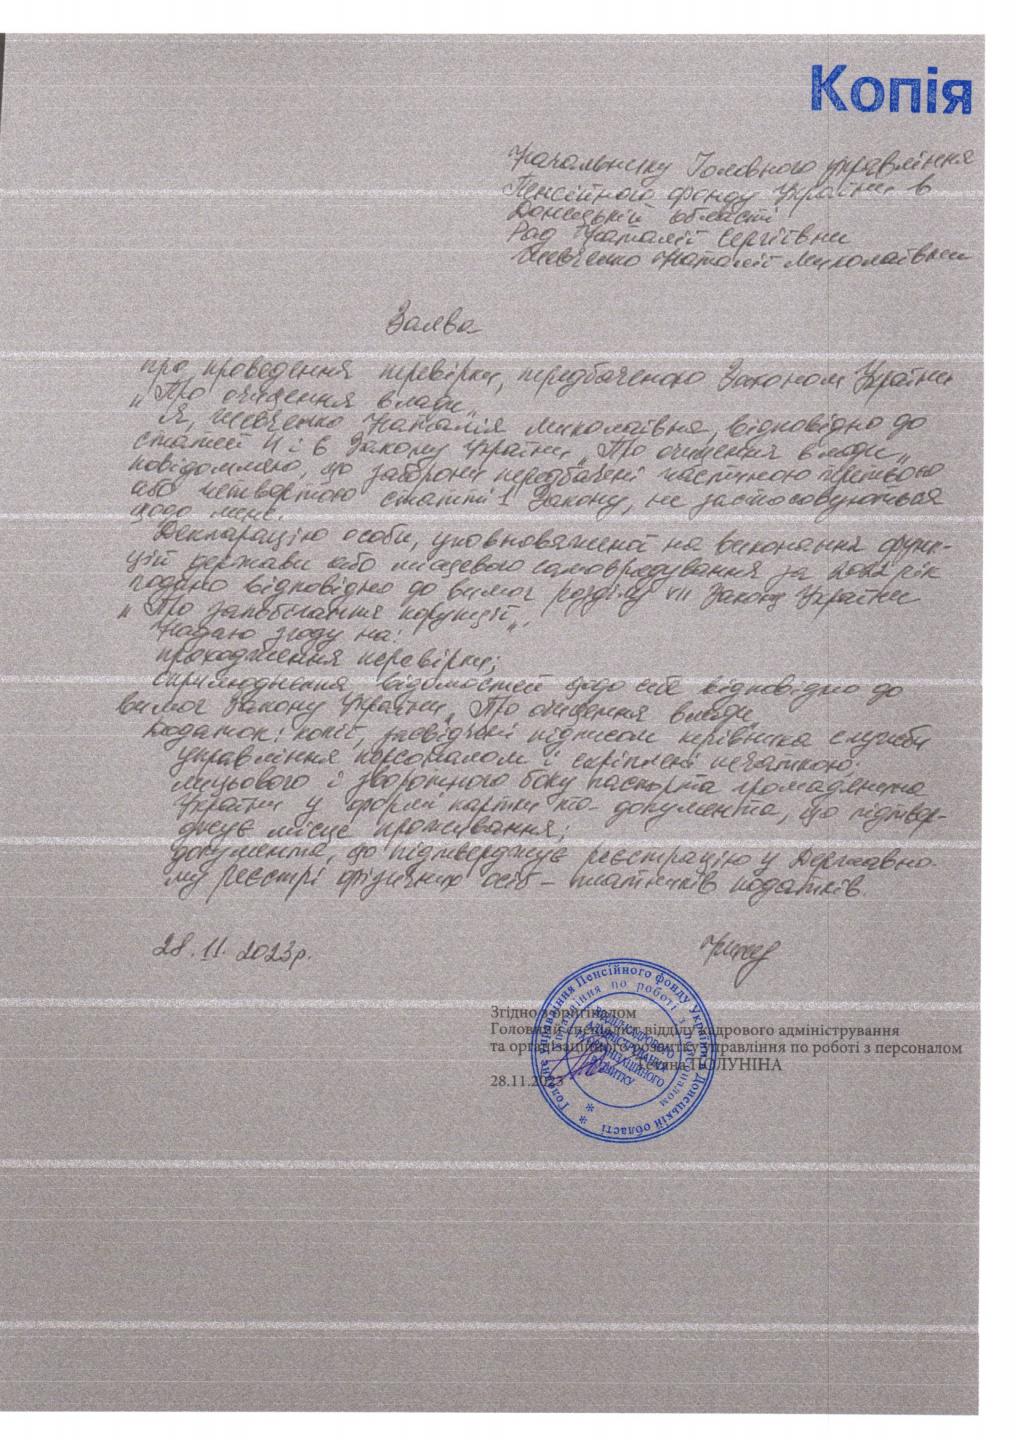 Копія
Начальнику Головного управління
Пенсійного фонду України в
Донецькій області
Рад Наталії Сергіївни
Шевченко Наталії Миколаївни
Заява
про проведення перевірки, передбаченою Законом України
„Про очищення влади„
Я, Шевченко Наталія Миколаївна, відповідно до
статей 4 і 6 Закону України „Про очищення влади„
повідомляю, що заборони передбачені частиною третьою
або четвертою статті 1 Закону, не застосовуються
щодо мене.
Декларацію особи, уповноваженої на виконання функ-
цій держави або місцевого самоврядування за 2022 рік
подано відповідно до вимог розділу VII Закону України
„Про запобігання корупції„.
Надаю згоду на:
проходження перевірки;
оприлюднення відомостей щодо себе відповідно до
вимог Закону України „Про очищення влади„
Додаток: копії, засвідчені підписом керівника служби
управління персоналом і скріплені печаткою:
лицьового і зворотного боку паспорта громадянина
України у формі картки та документа, що підтвер-
джує місце проживання;
документа, що підтверджує реєстрацію у Державно-
му реєстрі фізичних осіб – платників податків.
28.11.2023р.
Згідно з оригіналом
Головний спеціаліст відділу кадрового адміністрування
та організаційного розвитку управління по роботі з персоналом
Тетяна ПОЛУНІНА
28.11.2023
* Головне управління Пенсійного фонду України в Донецькій області
* управління по роботі з персоналом
ВІДДІЛ КАДРОВОГО
АДМІНІСТРУВАННЯ
ТА ОРГАНІЗАЦІЙНОГО
РОЗВИТКУ